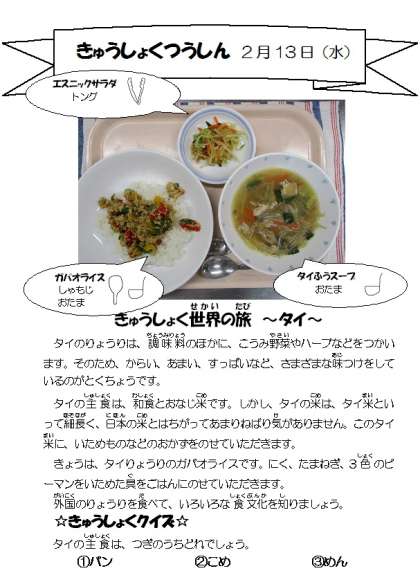 きゅうしょくつうしん ２月１３日（水）
エスニックサラダ
トング
ガパオライス
しゃもじ
おたま
タイふうスープ
おたま
きゅうしょく世界の旅 ～タイ～
タイのりょうりは、調味料のほかに、こうみ野菜やハーブなどをつかい
ます。そのため、からい、あまい、すっぱいなど、さまざまな味つけをして
いるのがとくちょうです。
タイの主食は、和食とおなじ米です。しかし、タイの米は、タイ米とい
って細長く、日本の米とはちがってあまりねばり気がありません。このタイ
米に、いためものなどのおかずをのせていただきます。
きょうは、タイりょうりのガパオライスです。にく、たまねぎ、３色のピ
ーマンをいためた具をごはんにのせていただきます。
外国のりょうりを食べて、いろいろな食文化を知りましょう。
☆きゅうしょくクイズ☆
タイの主食は、つぎのうちどれでしょう。
①パン ②こめ ③めん